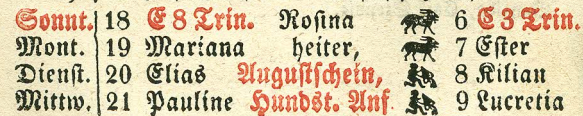 Sonnt. 18 E 8 Trin. Rosina 6 E 3 Trin.
Mont. 19 Mariana heiter, 7 Ester
Dienst. 20 Elias Augustschein, 8 Kilian
Mittw. 21 Pauline Hundst. Anf 9 Lucretia